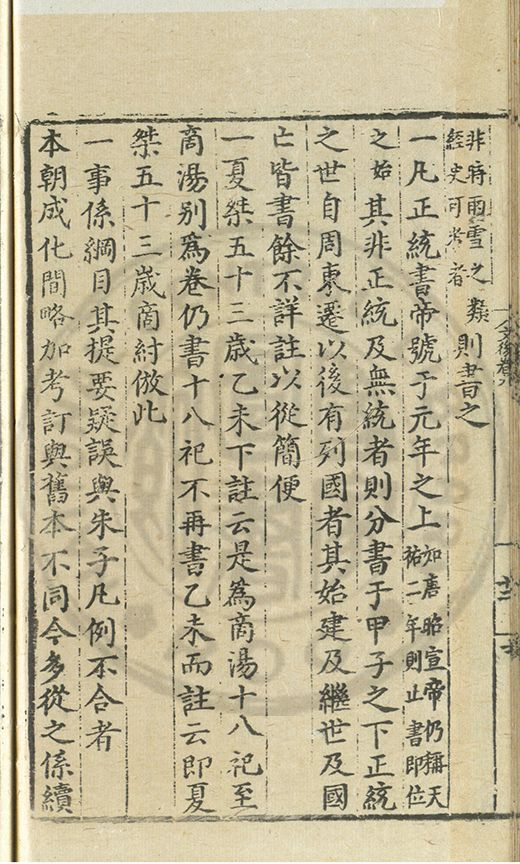 非時雨雪之類
經史可考者
則書之
一凡正統書帝號于元年之上如唐昭宣帝仍稱天
祐二年則止書即位
之始其非正統及無統者則分書于甲子之下正統
之世自周東遷以後有列國者其始建及繼世及國
亡皆書餘不詳註以從簡便
一夏桀五十三歲乙未下註云是爲商湯十八祀至
商湯別爲卷仍書十八祀不再書乙未而註云即夏
桀五十三歲商紂倣此
一事係綱目其提要疑誤與朱子凡例不合者
本朝成化間略加考訂與舊本不同今多從之係續